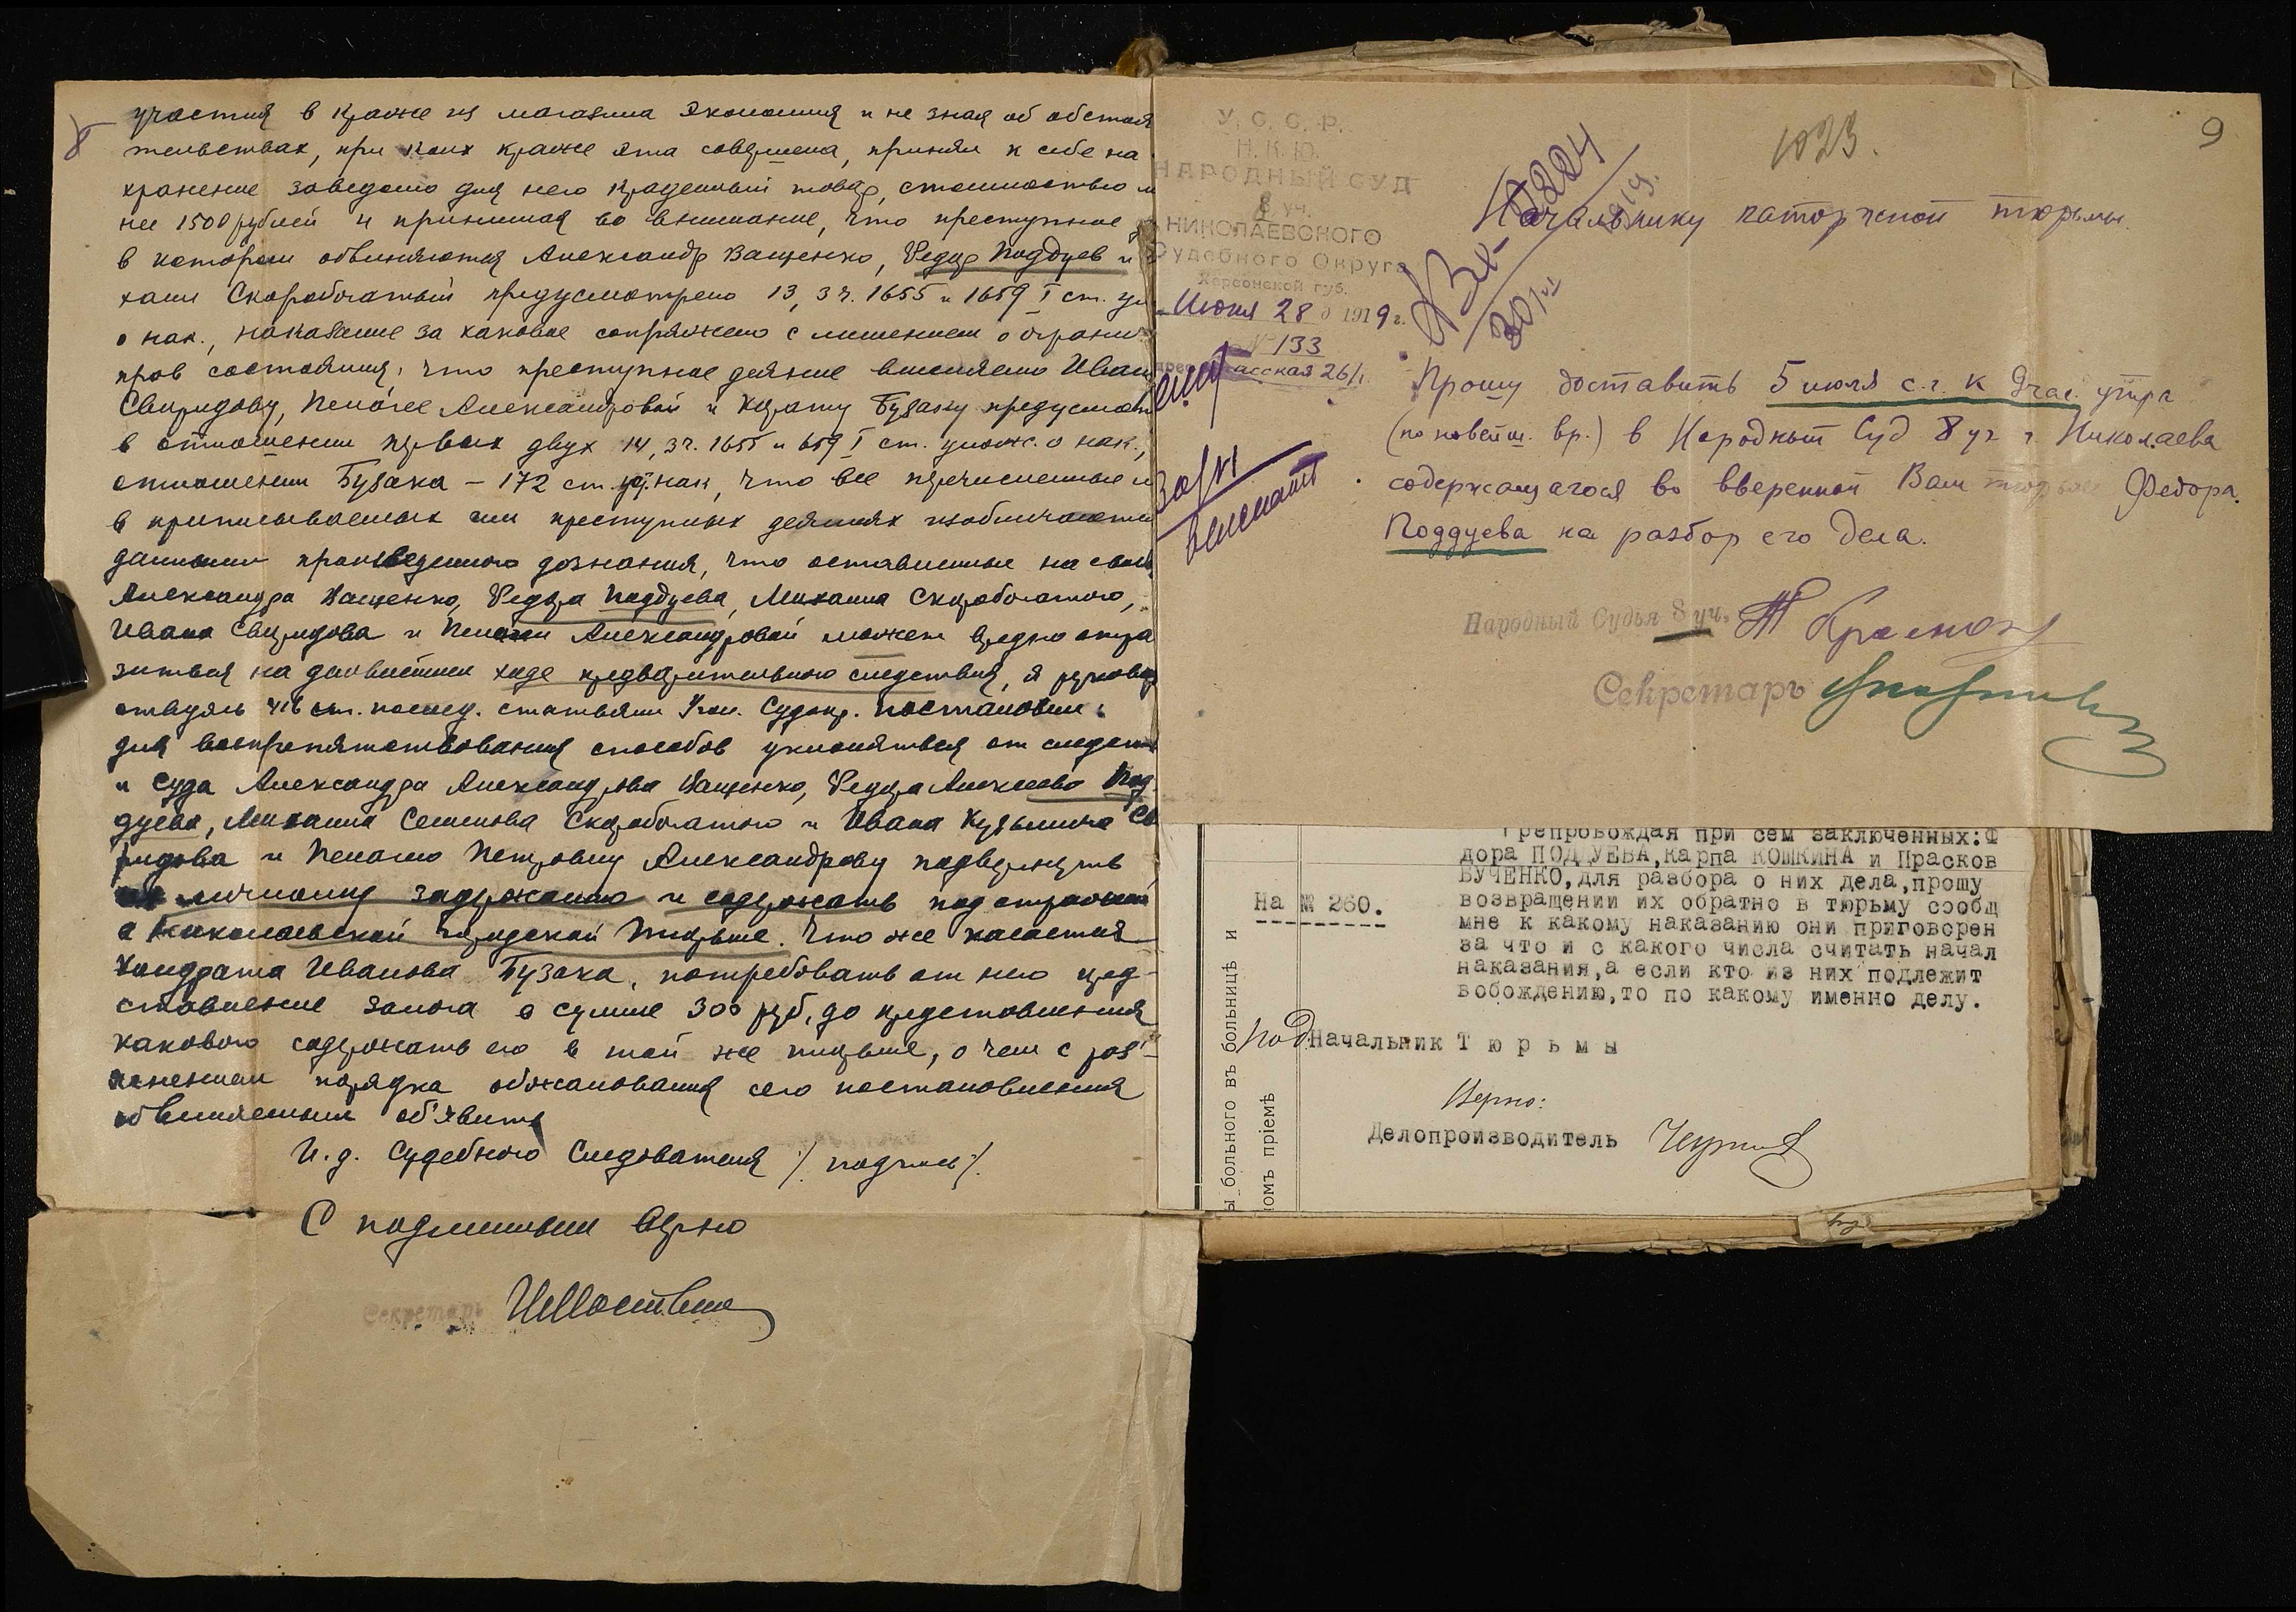 8
участия в краже из магазина Экономия и не зная об обстоя
тельствах, при коих кража эта совершена, принял к себе на
хранение заведомо для него краденный товар, стоимостью
нее 1500 рублей и принимая во внимание, что преступное
в котором обвиняются Александр Ващенко, Федор Поддуев и
хаил Скоробогатый предусмотрено 13, 3 ч. 1655 и 1659 I ст. ул
о нак., наказание за каковое сопряжено с лишением о огранич
прав состояния; что преступное деяние вменяемо Иван
Свиридову, Пелагее Александровой и Бузаку предусмот
в отношении первых двух 14, 3 ч. 1655 и 1659 I ст. улож. о нак.,
отношении Бузака – 172 ст. уст. нак, что все перечисленные
в приписываемых им преступных деяниях изобличаются
данными произведенного дознания, что оставление на свob
Александра Ващенко, Федора Поддуева, Михаила Скоробогатого,
Ивана Свиридова и Пелагеи Александровой может вредно отра
зиться на дальнейшем ходе предварительного следствия, я руковод
ствуясь 416 ст. послед. статьями Угол. Судопр. постановил:
для воспрепятствования способов уклоняться от следств
и суда Александра Александрова Ващенко, Федора Алексеева Под
дуева, Михаила Семенова Скоробогатого и Ивана Кузьмина Св
ридова и Пелагею Петровну Александрову подвергнуть
личному задержанию и содержать под стражей
в Николаевской городской тюрьме. Что же касается
Кондрата Иванова Бузака, потребовать от него пред-
ставление залога в сумме 300 руб, до представления
какового содержать его в той же тюрьме, о чем с раз'-
яснением порядка обжалования сего постановления
обвиняемым об'явить
И. д. Судебного Следователя /подпись/.
С подлинным верно
Секретарь
У. С. С. Р.
Н. К. Ю.
НАРОДНЫЙ СУД
8 уч.
НИКОЛАЕВСКОГО
Судебного Округа
Херсонской губ.
Июня 28 д 1919 г.
№ 133
асская 26/1
1023.
9
Начальнику каторжной тюрьмы
30/VI
Прошу доставить 5 июля с.г. к 9 час. утра
(по новейш. вр.) в Народный Суд 8 уч г. Николаева
содержащагося во вверенной Вам тюрьме Федора
Поддуева на разбор его дела.
Народный Судья 8 уч.
Секретарь
Препровождая при сем заключенных: Ф
дора ПОДДУЕВА, Карпа КОШКИНА и Прасков
ВУЧЕНКО, для разбора о них дела, прошу
возвращении их обратно в тюрьму сообщ
мне к какому наказанию они приговорен
за что и с какого числа считать начал
наказания, а если кто из них подлежит
вобождению, то по какому именно делу.
На № 260.
ы больного въ больницѣ и
омъ пріемѣ
Под Начальник Тюрьмы
Верно:
Делопроизводитель